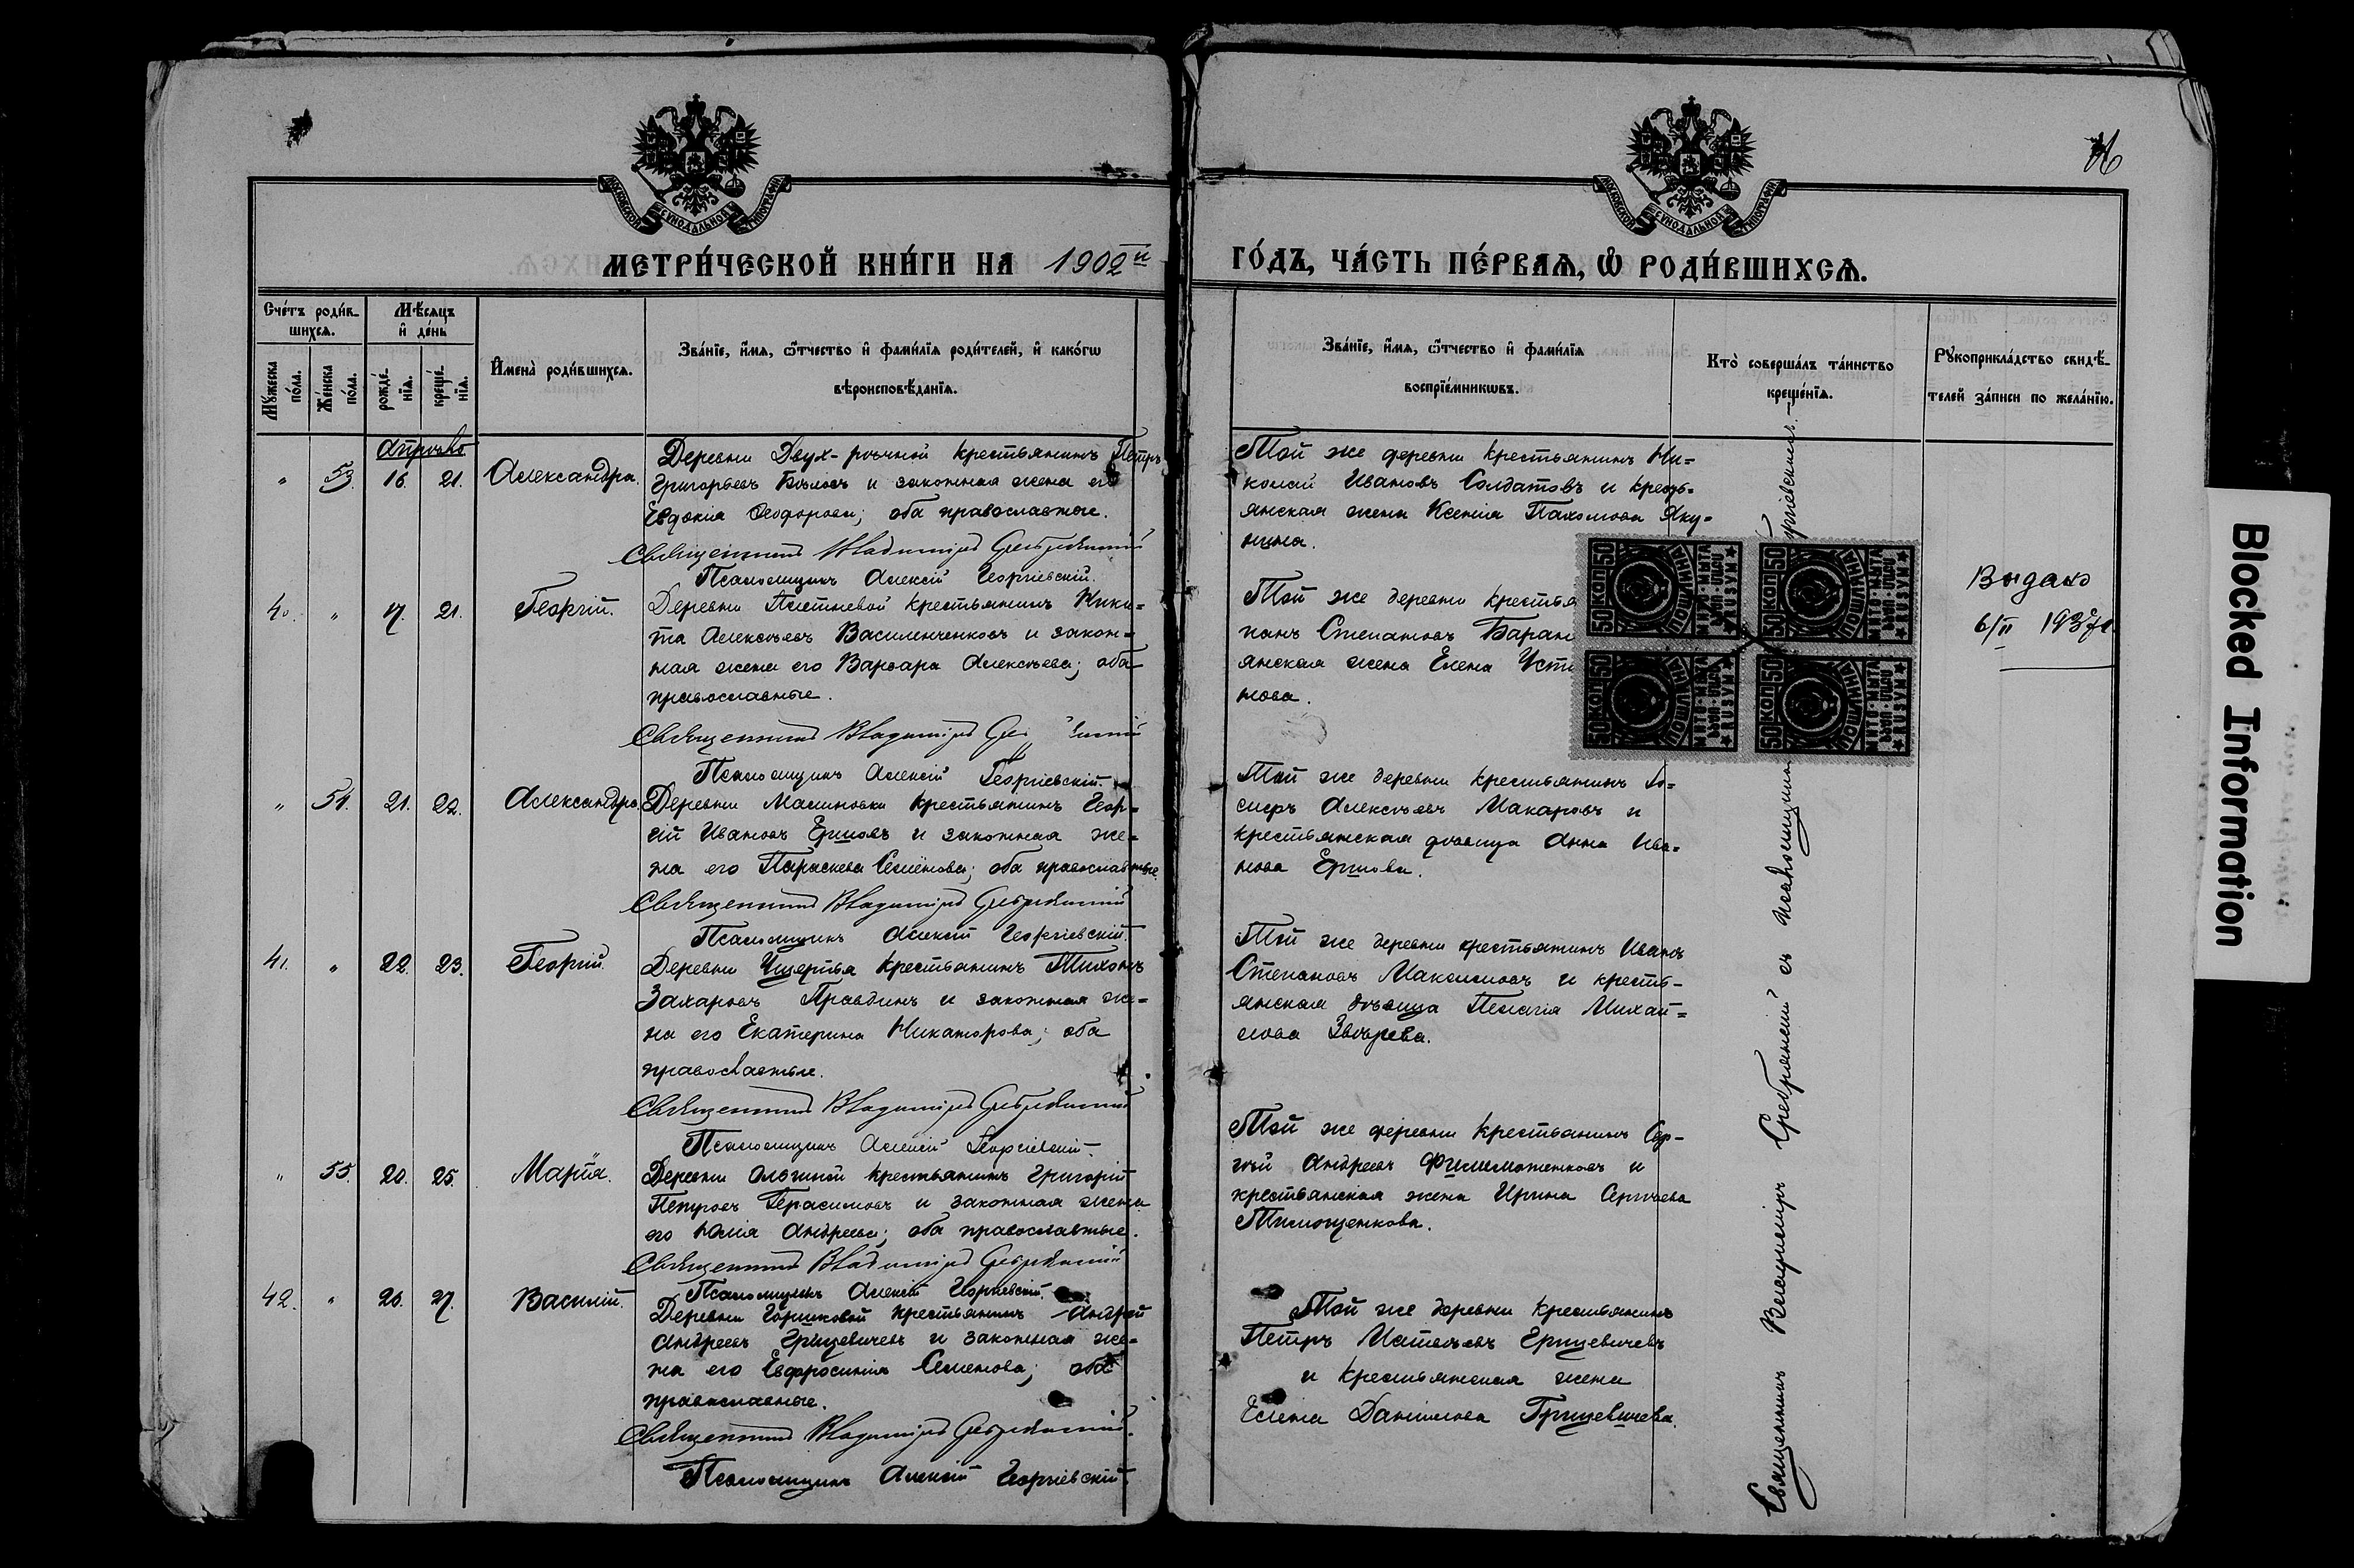 МЕТРИ́ЧЕСКОЙ КНИ́ГИ НА 1902й
ГО́ДЪ, ЧА́СТЬ ПЕ́РВАѦ, Ѡ РОДИ́ВШИХСѦ.
Сче́тъ роди́в-
шихсѧ.
Мѣ́сѧцъ
и де́нь
Мꙋ́жеска
по́ла.
Же́нска
по́ла.
рожде́-
нїѧ.
креще́-
нїѧ.
Имена̀ роди́вшихсѧ.
Зва́нїе, и́мѧ, ѻ҆́тчество и҆ фами́лїѧ роди́телей, и҆ како́гѡ
вѣроисповѣ́данїѧ.
Зва́нїе, и́мѧ, ѻ҆́тчество и҆ фами́лїѧ
воспрїе́мникѡвъ.
Кто̀ соверша́лъ та́инство
креще́нїѧ.
Рꙋкоприкла́дство свидѣ́-
телей за́писи по жела́нїю.
" 53. 16. 21. Александра.
Деревни Двух-рѣчной крестьянинъ Петръ
Григорьевъ Бѣловъ и законная жена его
Евдокія Ѳеодорова; оба православные.
Священникъ Владиміръ Сребрянскій
Псаломщикъ Алексій Георгіевскій.
Той же деревни крестьянинъ Ни-
колай Ивановъ Солдатовъ и кресть-
янская жена Ксенія Пахомова Яку-
нина.
40. " 17. 21. Георгій.
Деревни крестьянинъ Ники-
та Алексѣевъ Василенченковъ и закон-
ная жена его Варвара Алексѣева; оба
православные.
Священникъ Владиміръ
Псаломщикъ Алексій Георгіевскій.
Той же деревни крестья
панъ Степановъ Баран
янская жена Елена Усти
нова.
50 КОП
50 КОП
50 КОП
50 КОП
Выдано
6/II 1937г.
" 54. 21. 22. Александра.
Деревни Малиновки крестьянинъ Геор-
гій Ивановъ Ершовъ и законная же-
на его Параскева Семёнова; оба православные.
Священникъ Владиміръ Сребрянскій
Псаломщикъ Алексій Георгіевскій.
Той же деревни крестьянинъ Іо-
сифъ Алексѣевъ Макаровъ и
крестьянская дѣвица Анна Ива-
нова Ершова.
41. " 22. 23. Георгій.
Деревни крестьянинъ Тихонъ
Захаровъ Правдинъ и законная же-
на его Екатерина Никанорова; оба
православные.
Священникъ Владиміръ Сребрянскій
Псаломщикъ Алексій Георгіевскій.
Той же деревни крестьянинъ Иванъ
Степановъ Максимовъ и кресть-
янская дѣвица Пелагія Михай-
лова Звѣрева.
" 55. 20. 25. Марія.
Деревни Ольгиной крестьянинъ Григорій
Петровъ Герасимовъ и законная жена
его Юлія Андреева; оба православные.
Священникъ Владиміръ Сребрянскій
Псаломщикъ Алексій Георгіевскій.
Той же деревни крестьянинъ Сер-
гѣй Андреевъ Филимоненковъ и
крестьянская жена Ирина Сергѣева
Тимощенкова.
42. " 26. 27. Василій.
Деревни Горшковой крестьянинъ Андрей
Андреевъ Грицевичевъ и законная же-
на его Евфросинія Семенова; оба
православные.
Священникъ Владиміръ Сребрянскій.
Псаломщикъ Алексій Георгіевскій.
Той же деревни крестьянинъ
Петръ Матвѣевъ Грицевичевъ
и крестьянская жена
Елена Данилова Грицевичева.
Священникъ Владиміръ Сребрянскій съ псаломщико
ргіевскимъ.
Blocked Information